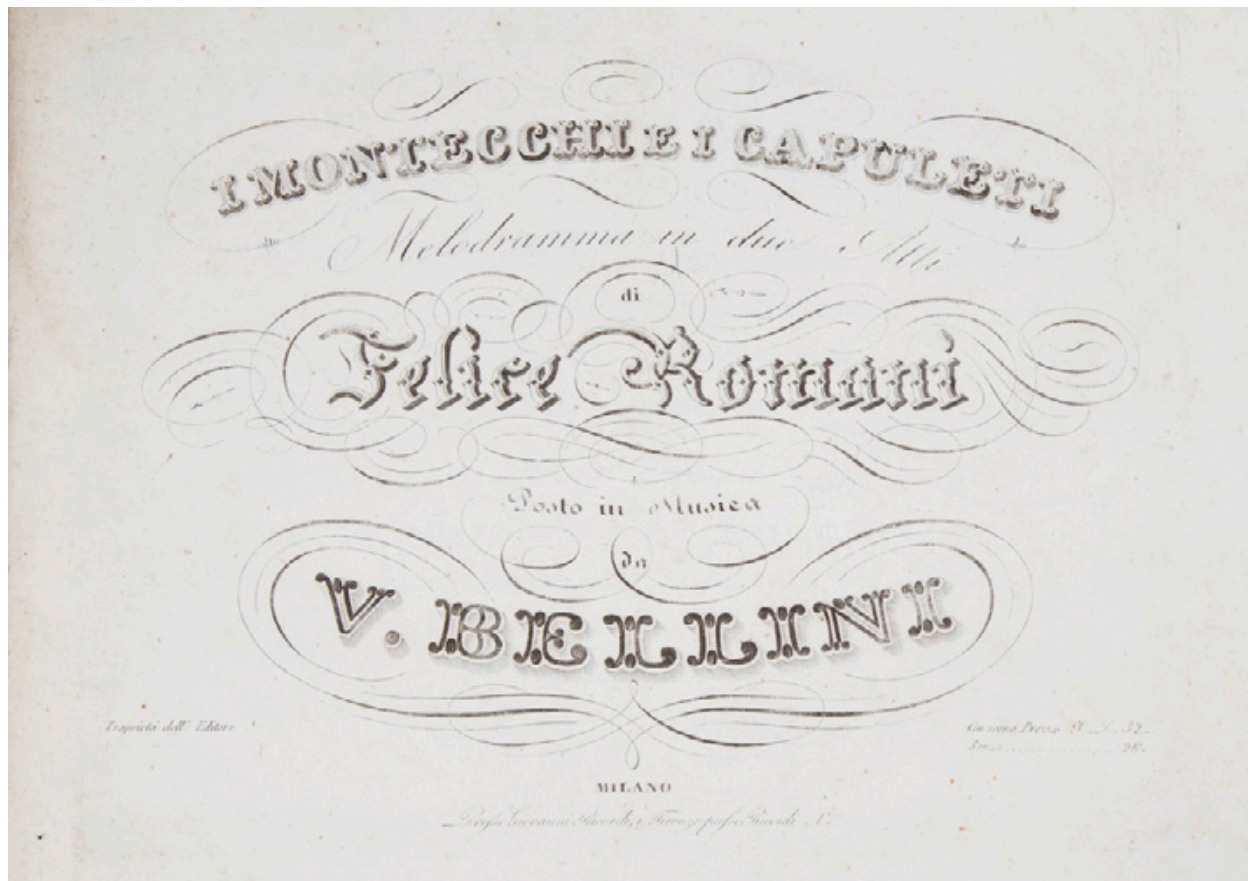 I MONTECCHI E I CAPULETI
Melodramma in due Atti
di
Felice Romani
Posto in Musica
da
V. BELLINI
Proprietà dell' Editore
MILANO
Giovanni Ricordi, e Firenze